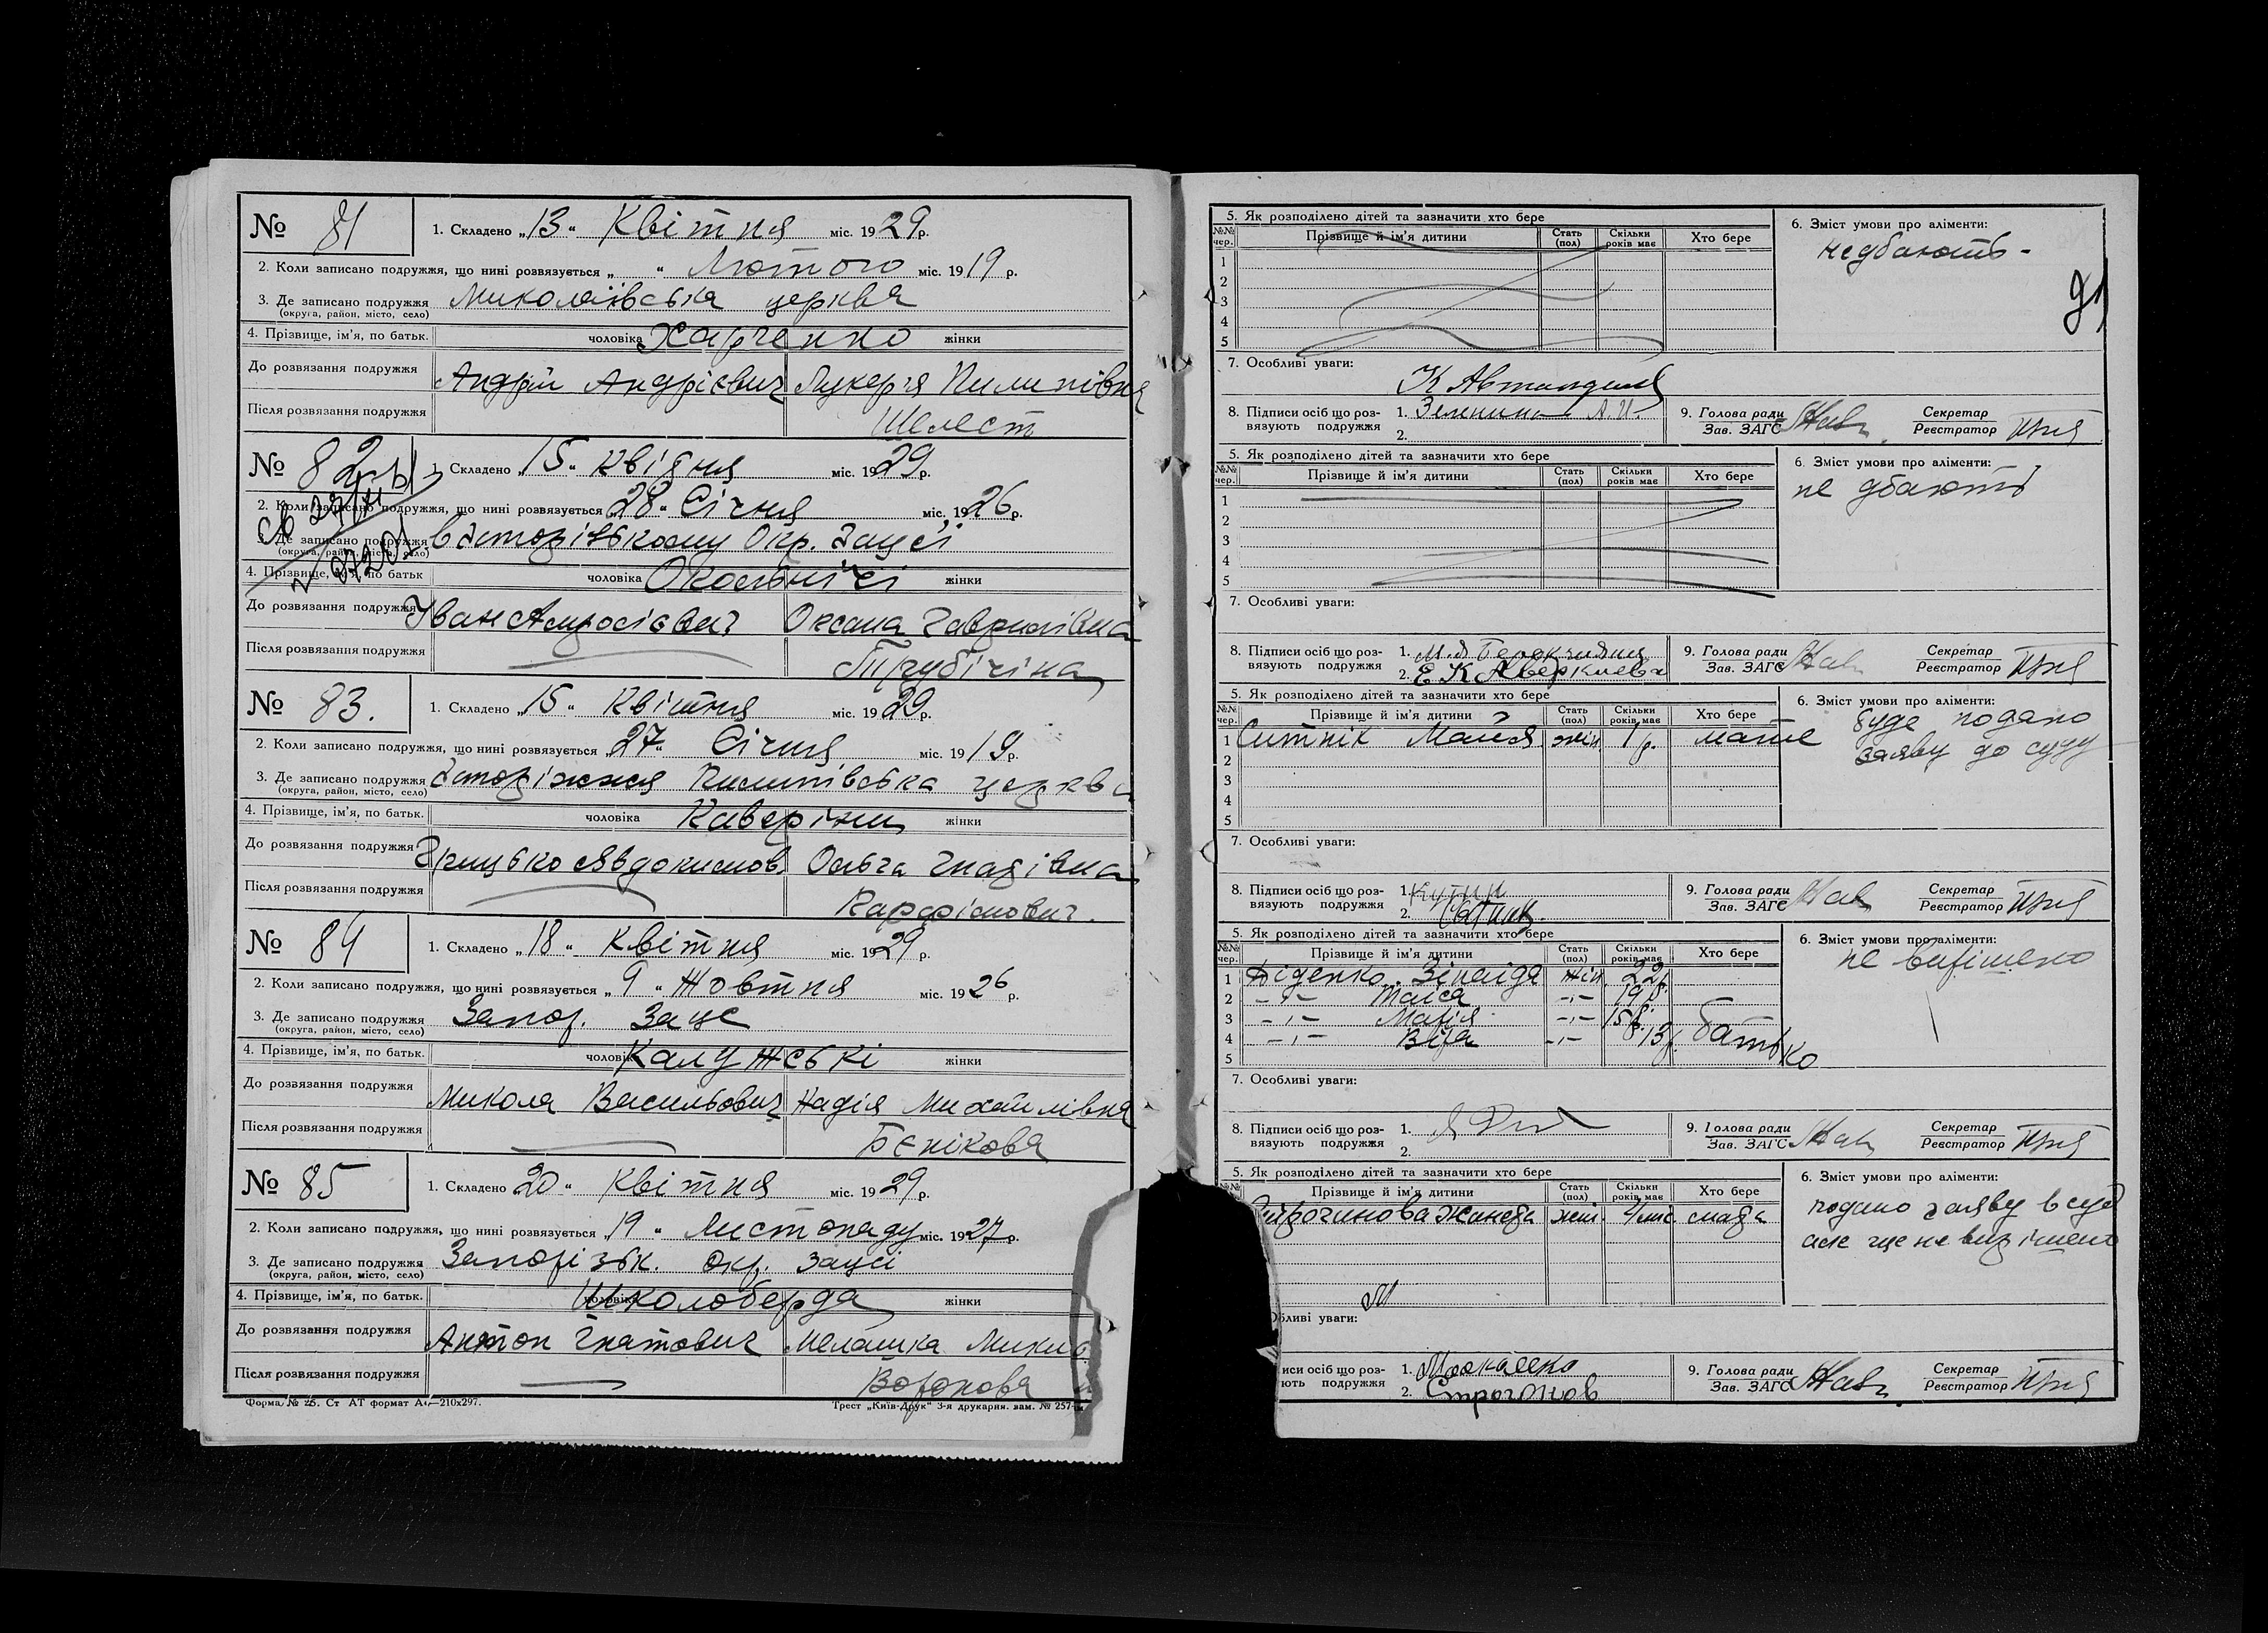 № 81
1. Складено „13" Квітня міс. 1929р.
2. Коли записано подружжя, що нині розвязується „ " Лютого міс. 1919 р.
3. Де записано подружжя Миколаївська церква
(округа, район, місто, село)
4. Прізвище, ім'я, по батьк. чоловіка Харченко жінки
До розвязання подружжя Андрій Андрієвич Лукерія Пилипівна
Після розвязання подружжя Шелест
№ 82
1. Складено „15" Квітня міс. 1929р.
2. Коли записано подружжя, що нині розвязується „28" Січня міс. 1926р.
3. Де записано подружжя в Запорізькому Окр. Загсі
(округа, район, місто, село)
4. Прізвище, ім'я, по батьк чоловіка жінки
До розвязання подружжя Іван Оксана Гаврилівна
Після розвязання подружжя Трубічіна
№ 83.
1. Складено „15" Квітня міс. 1929р.
2. Коли записано подружжя, що нині розвязується „27" Січня міс. 1919р.
3. Де записано подружжя Запоріжжя Пилипівська церква
(округа, район, місто, село)
4. Прізвище, ім'я, по батьк. чоловіка Каверіни жінки
До розвязання подружжя Грицько Явдокимов. Ольга
Після розвязання подружжя
№ 84
1. Складено „18" Квітня міс. 1929 р.
2. Коли записано подружжя, що нині розвязується „9" Жовтня міс. 1926 р.
3. Де записано подружжя Запор. Загс
(округа, район, місто, село)
4. Прізвище, ім'я, по батьк. чоловіка Калужські жінки
До розвязання подружжя Микола Васильович Надія Михайлівна
Після розвязання подружжя Бєнікова
№ 85
1. Складено „20" Квітня міс. 1929р.
2. Коли записано подружжя, що нині розвязується „19" Листопаду міс. 1927р.
3. Де записано подружжя Запорізьк. окр. загсі
(округа, район, місто, село)
4. Прізвище, ім'я, по батьк. чоловіка Школоберда жінки
До розвязання подружжя Антон Гнатович Мелашка
Після розвязання подружжя Воронова
Форма № 25. Ст АТ формат А4—210х297. Трест „Київ-Друк" 3-я друкарня. зам. № 257
5. Як розподілено дітей та зазначити хто бере
№№ чер. Прізвище й ім'я дитини Стать (пол) Скільки років має Хто бере
1
2
3
4
5
6. Зміст умови про аліменти:
не дбають -
91
7. Особливі уваги:
8. Підписи осіб що розвязують подружжя 1.
2.
9. Голова ради Зав. ЗАГС Секретар Реєстратор
5. Як розподілено дітей та зазначити хто бере
№№ чер. Прізвище й ім'я дитини Стать (пол) Скільки років має Хто бере
1
2
3
4
5
6. Зміст умови про аліменти:
не дбають
7. Особливі уваги:
8. Підписи осіб що розвязують подружжя 1.
2. Е К Аверкиева
9. Голова ради Зав. ЗАГС Секретар Реєстратор
5. Як розподілено дітей та зазначити хто бере
№№ чер. Прізвище й ім'я дитини Стать (пол) Скільки років має Хто бере
1 Ситнік Майя жін. 1 р. мати
2
3
4
5
6. Зміст умови про аліменти:
буде подано
заяву до суду
7. Особливі уваги:
8. Підписи осіб що розвязують подружжя 1.
2.
9. Голова ради Зав. ЗАГС Секретар Реєстратор
5. Як розподілено дітей та зазначити хто бере
№№ чер. Прізвище й ім'я дитини Стать (пол) Скільки років має Хто бере
1 Діденко Зінаіда жін. 22р.
2 -"- Таіса -"- 19 р.
3 -"- Марія -"- 15р.
4 -"- Віра -"- 13р. батько
5
6. Зміст умови про аліменти:
не вирішено
7. Особливі уваги:
8. Підписи осіб що розвязують подружжя 1.
2.
9. Голова ради Зав. ЗАГС Секретар Реєстратор
5. Як розподілено дітей та зазначити хто бере
Прізвище й ім'я дитини Стать (пол) Скільки років має Хто бере
жін. 4 міс
6. Зміст умови про аліменти:
подано заяву в суд
але ще не вирішено
бливі уваги:
иси осіб що розють подружжя 1.
2.
9. Голова ради Зав. ЗАГС Секретар Реєстратор